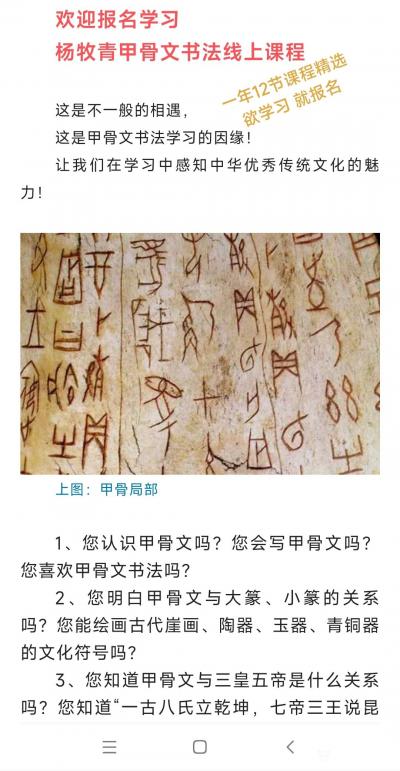 欢迎报名学习
杨牧青甲骨文书法线上课程
一年12节课程精选
欲学习 就报名
这是不一般的相遇，
这是甲骨文书法学习的因缘！
让我们在学习中感知中华优秀传统文化的魅
力！
上图：甲骨局部
1、您认识甲骨文吗？您会写甲骨文吗？
您喜欢甲骨文书法吗？
2、您明白甲骨文与大篆、小篆的关系
吗？您能绘画古代崖画、陶器、玉器、青铜器
的文化符号吗？
3、您知道甲骨文与三皇五帝是什么关系
吗？您知道“一古八氏立乾坤，七帝三王说昆